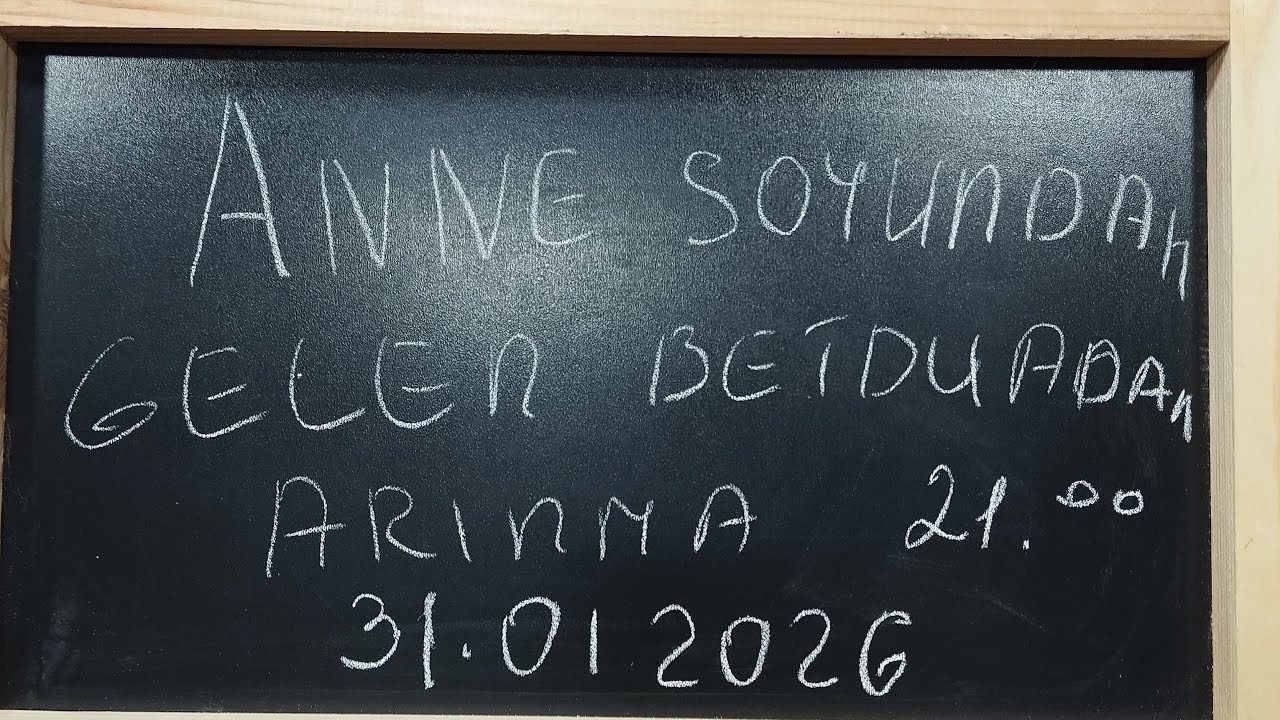 ANNE SOYUNDAN
GELEN BETDUADAN
ARINMA 21.00
31.01 2026